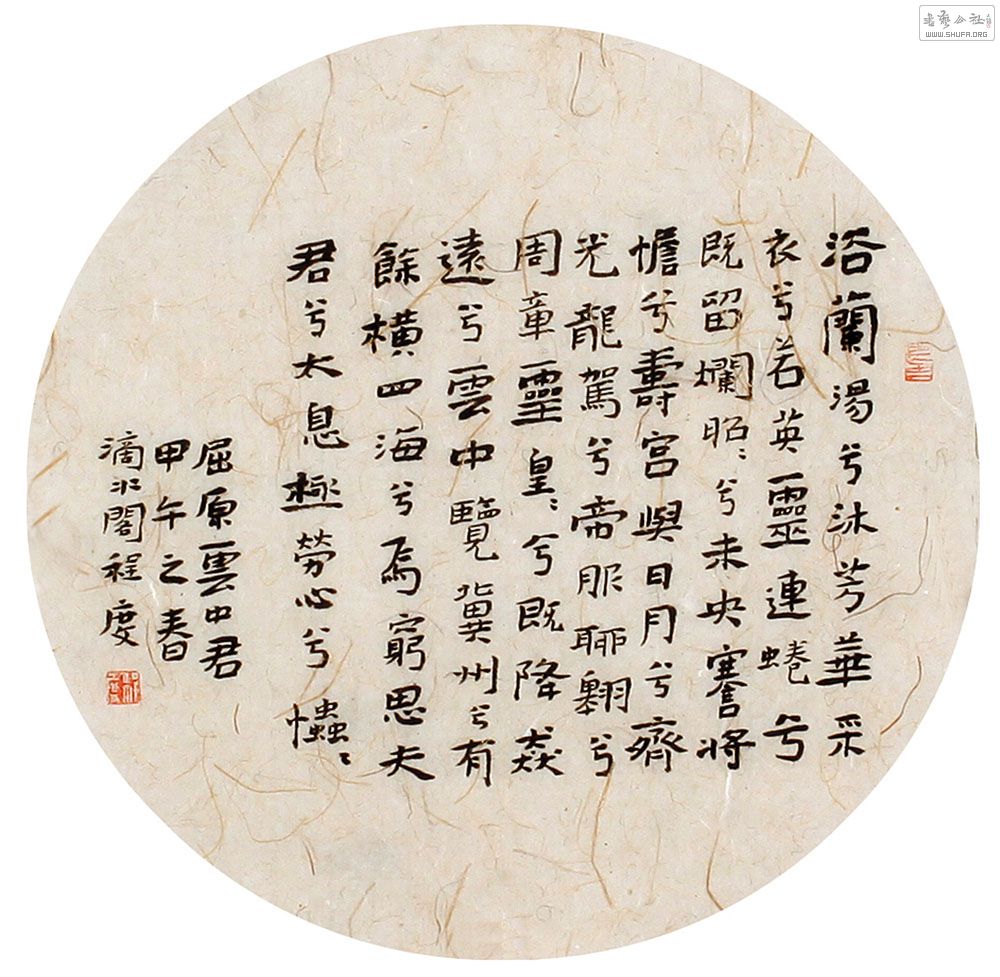 浴蘭湯兮沐芳華采
衣兮若英靈連蜷兮
既留爛昭〻兮未央謇將
憺兮壽宮與日月兮齊
光龍駕兮帝服聊翱兮
周章靈皇〻兮既降猋
遠兮雲中覽冀州兮有
餘橫四海兮焉窮思夫
君兮太息極勞心兮忡〻
屈原雲中君
甲午之春
滴水閣程度
WWW.SHUFA.ORG